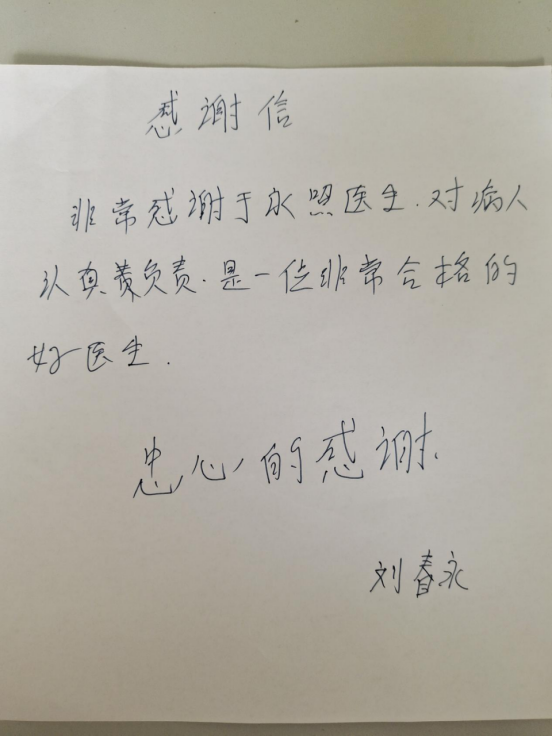 感谢信
非常感谢于永照医生.对病人
认真责负责.是一位非常合格的
好医生.
忠心的感谢.
刘春永